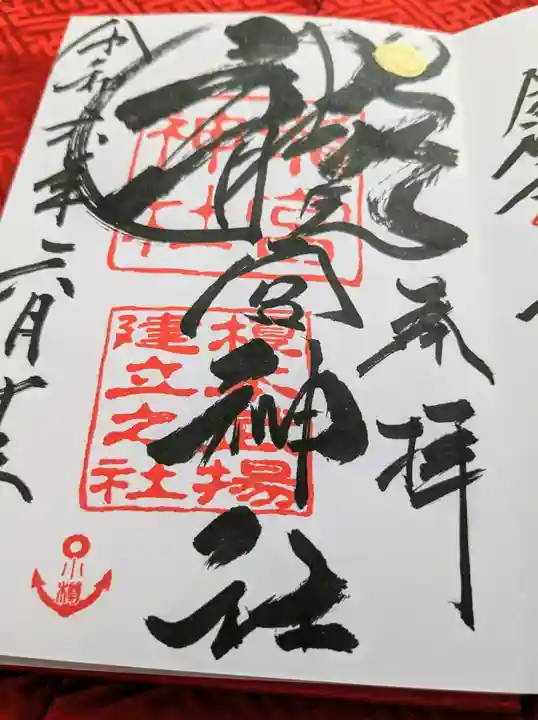 奉拝
龍宮神社
龍宮
神社
榎本武揚
建立之社
令和六年六月
小樽